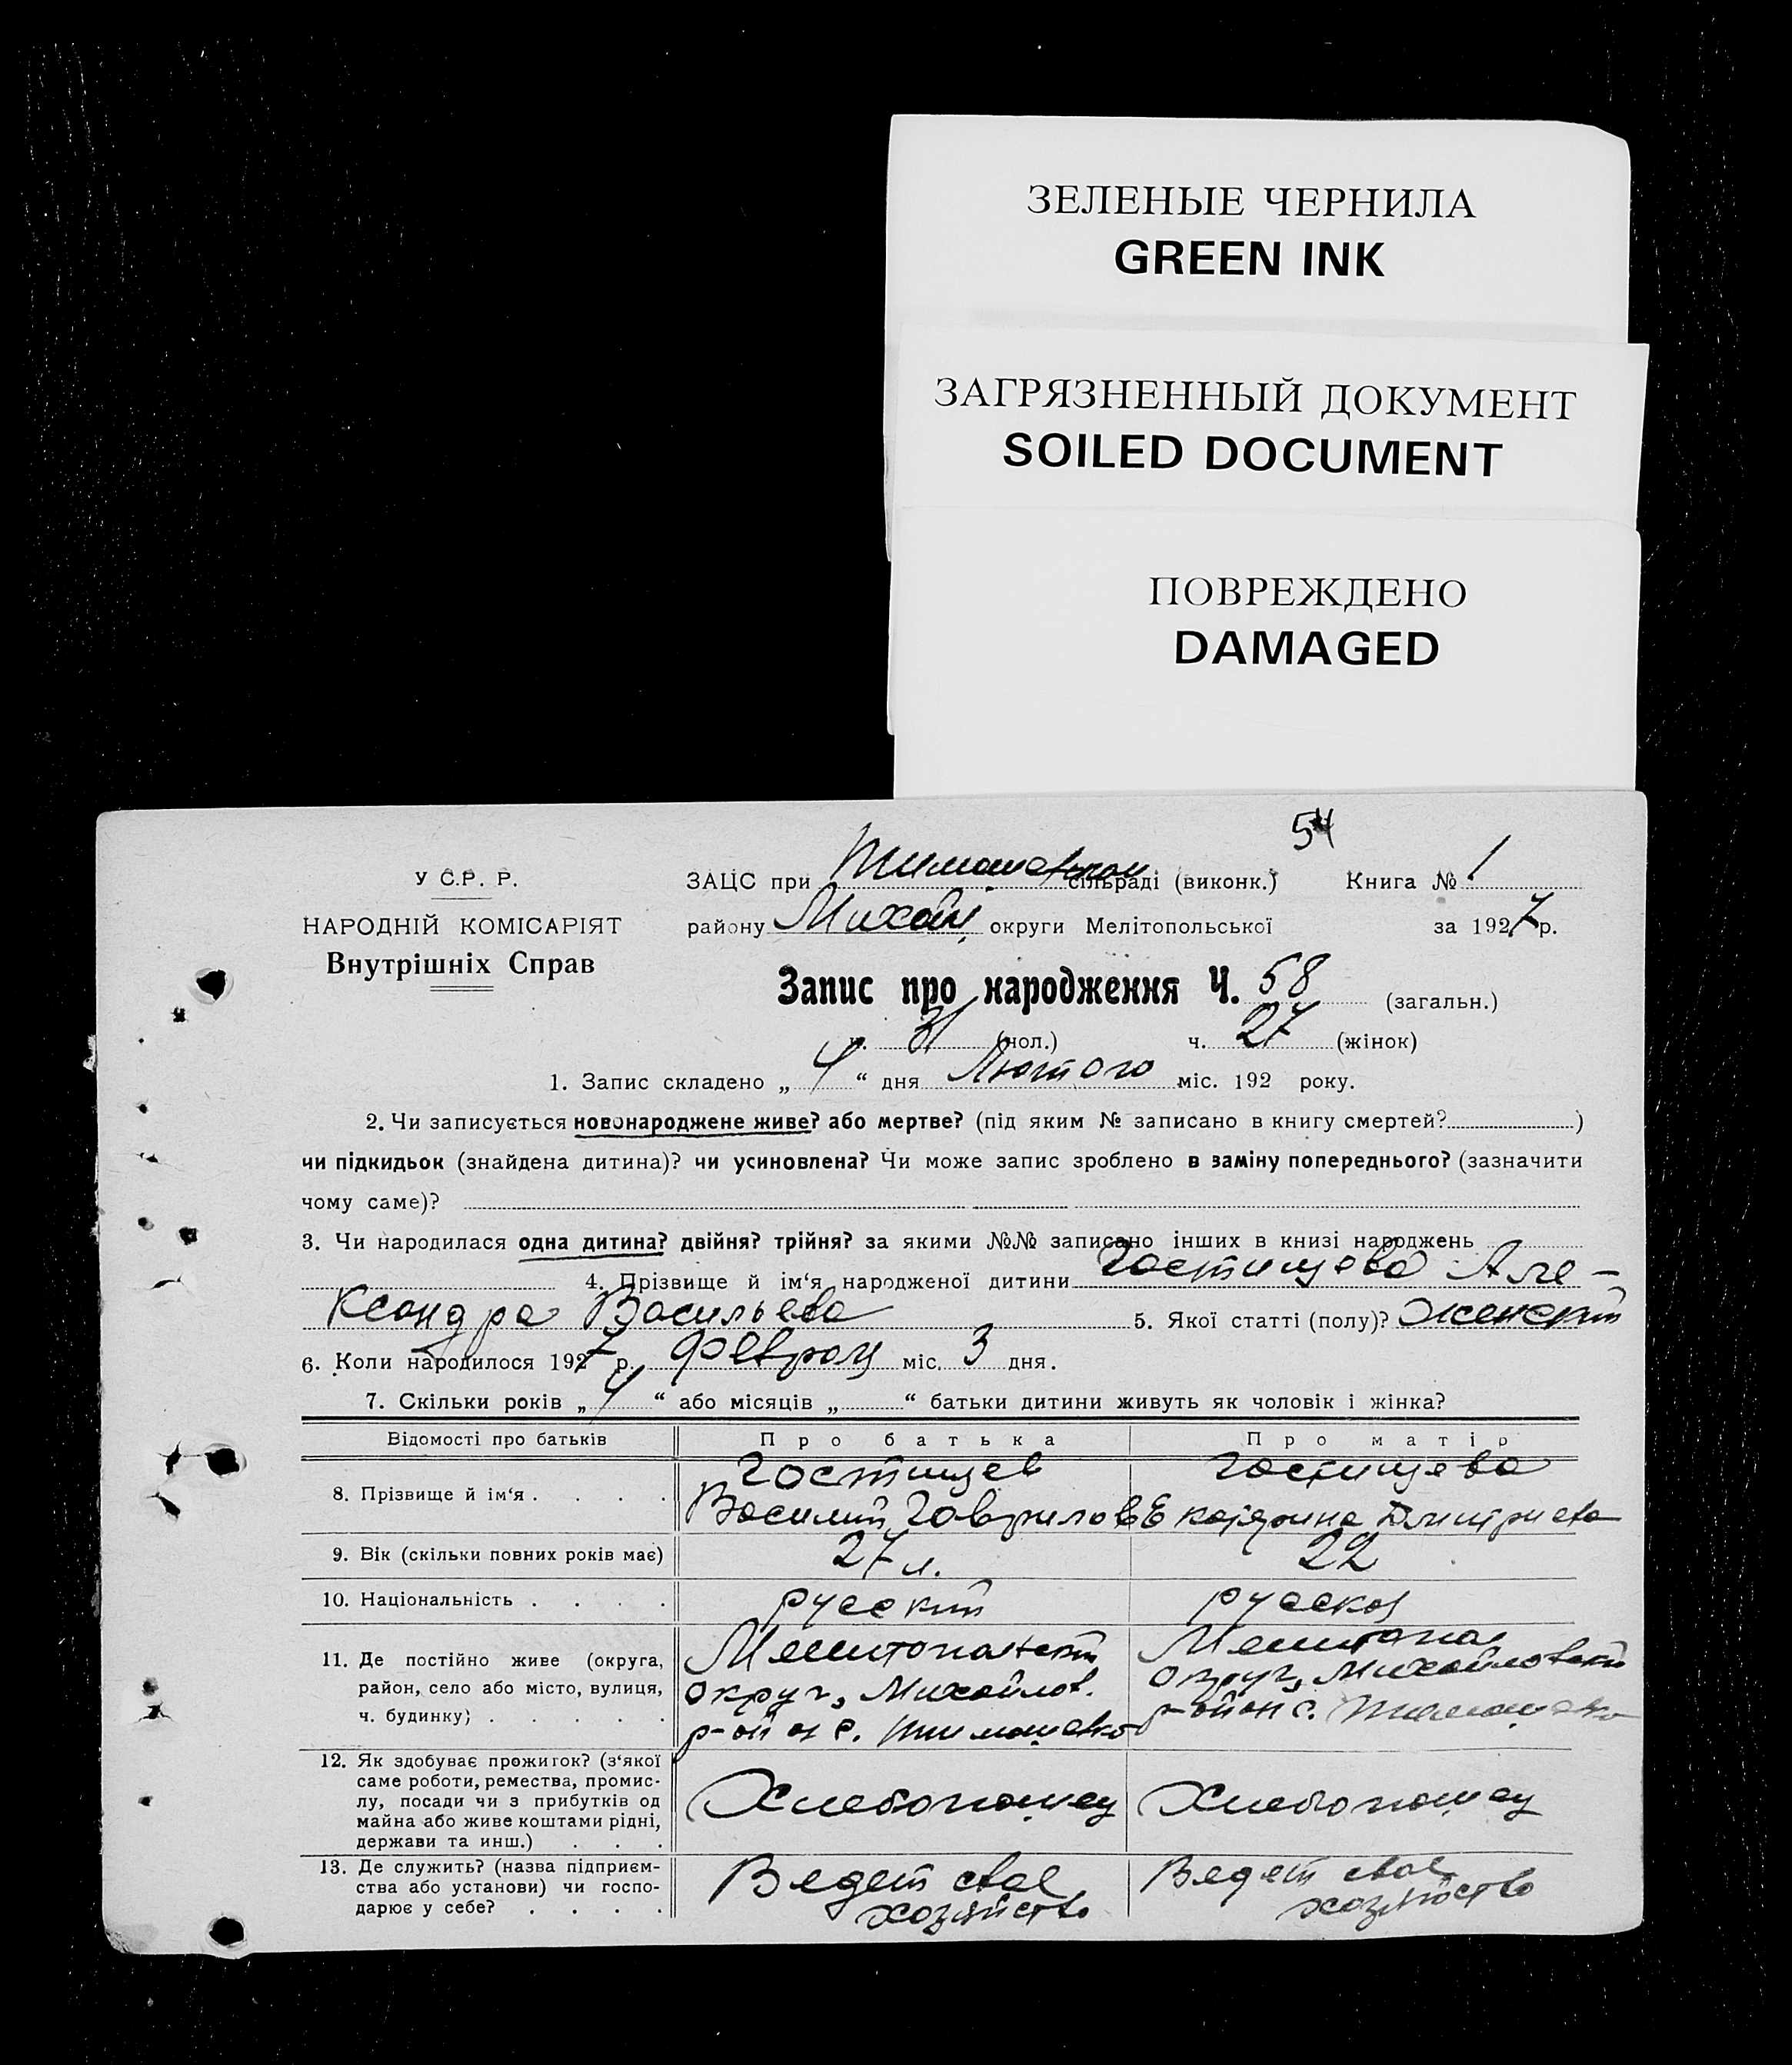 ЗЕЛЕНЫЕ ЧЕРНИЛА
GREEN INK
ЗАГРЯЗНЕННЫЙ ДОКУМЕНТ
SOILED DOCUMENT
ПОВРЕЖДЕНО
DAMAGED
54
У С.Р. Р.
НАРОДНІЙ КОМІСАРІЯТ
Внутрішніх Справ
ЗАЦС при сільраді (виконк.) Книга № 1
району Михайл. округи Мелітопольської за 1927 р.
Запис про народження Ч. 58 (загальн.)
ч. 31 (чол.) ч. 27 (жінок)
1. Запис складено „ 4 “ дня Лютого міс. 192 року.
2. Чи записується новонароджене живе? або мертве? (під яким № записано в книгу смертей? )
чи підкидьок (знайдена дитина)? чи усиновлена? Чи може запис зроблено в заміну попереднього? (зазначити
чому саме)?
3. Чи народилася одна дитина? двійня? трійня? за якими №№ записано інших в книзі народжень
4. Прізвище й ім‘я народженої дитини Гостищева Але-
ксандра Васильева 5. Якої статті (полу)? женский
6. Коли народилося 1927 р. Февраля міс. 3 дня.
7. Скільки років „ 4 “ або місяців „ “ батьки дитини живуть як чоловік і жінка?
Відомості про батьків Про батька Про матір
8. Прізвище й ім‘я . . . . Гостищев Василий Гаврилов Гостищева Екатерина Дмитриева
9. Вік (скільки повних років має) 27 л. 22
10. Національність . . . . русский русская
11. Де постійно живе (округа, Мелитопольский
район, село або місто, вулиця, округ, Михайлов. округ, Михайловский
ч. будинку) . . . . . р-он с. Тимошевка р-он с. Тимошевка
12. Як здобуває прожиток? (з‘якої
саме роботи, ремества, промис-
лу, посади чи з прибутків од Хлебопашец Хлебопашец
майна або живе коштами рідні,
держави та инш.) . . .
13. Де служить? (назва підприєм- Ведет свое Ведет свое
ства або установи) чи госпо- хозяйство хозяйство
дарює у себе? . . . .